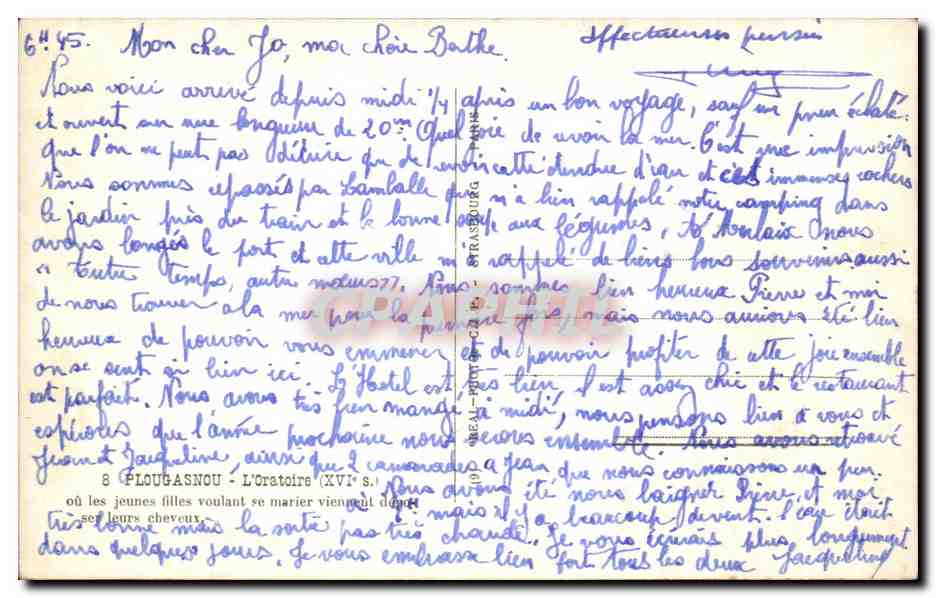 6H45. Mon cher Jo, ma chère Berthe.
affectueuses pensées
Nous voici arrivé depuis midi 1/4 après un bon voyage, sauf un pneu éclaté
et ouvert sur une longueur de 20cm. Quel joie de revoir la mer. C'est une impression
que l'on ne peut pas décrire que de revoir cette étendue d'eau et ces immenses rochers
Nous sommes repassés par Lamballe qui m'a bien rappelé notre camping dans
le jardin près du train et la bonne soupe aux légumes, à Morlaix nous
avons longés le port et cette ville m'a rappelé de biens bons souvenirs aussi
"Autre temps, autre mœurs". Nous sommes bien heureux Pierre et moi
de nous trouver a la mer pour la première fois, mais nous aurions été bien
heureux de pouvoir vous emmener et de pouvoir profiter de cette joie ensemble
on se sent si bien ici. L'Hotel est très bien, il est assez chic et le restaurant
est parfait. Nous avons très bien mangé à midi, nous pensons bien à vous et
espérons que l'année prochaine nous serons ensemble. Nous avons retrouvé
Jean et Jacqueline, ainsi que 2 camarades a Jean que nous connaissons un peu.
8 PLOUGASNOU - L'Oratoire (XVIe s.)
où les jeunes filles voulant se marier viennent dépo-
ser leurs cheveux.
Nous avons été nous baigner Pierre et moi
mais il y a beaucoup de vent. l'eau était
très bonne mais la sortie pas très chaude. Je vous écrirais plus longuement
dans quelques jours. Je vous embrasse bien fort tous les deux Jacqueline
RÉAL-PHOTO C.A.P. STRASBOURG PARIS
CPAPHIL